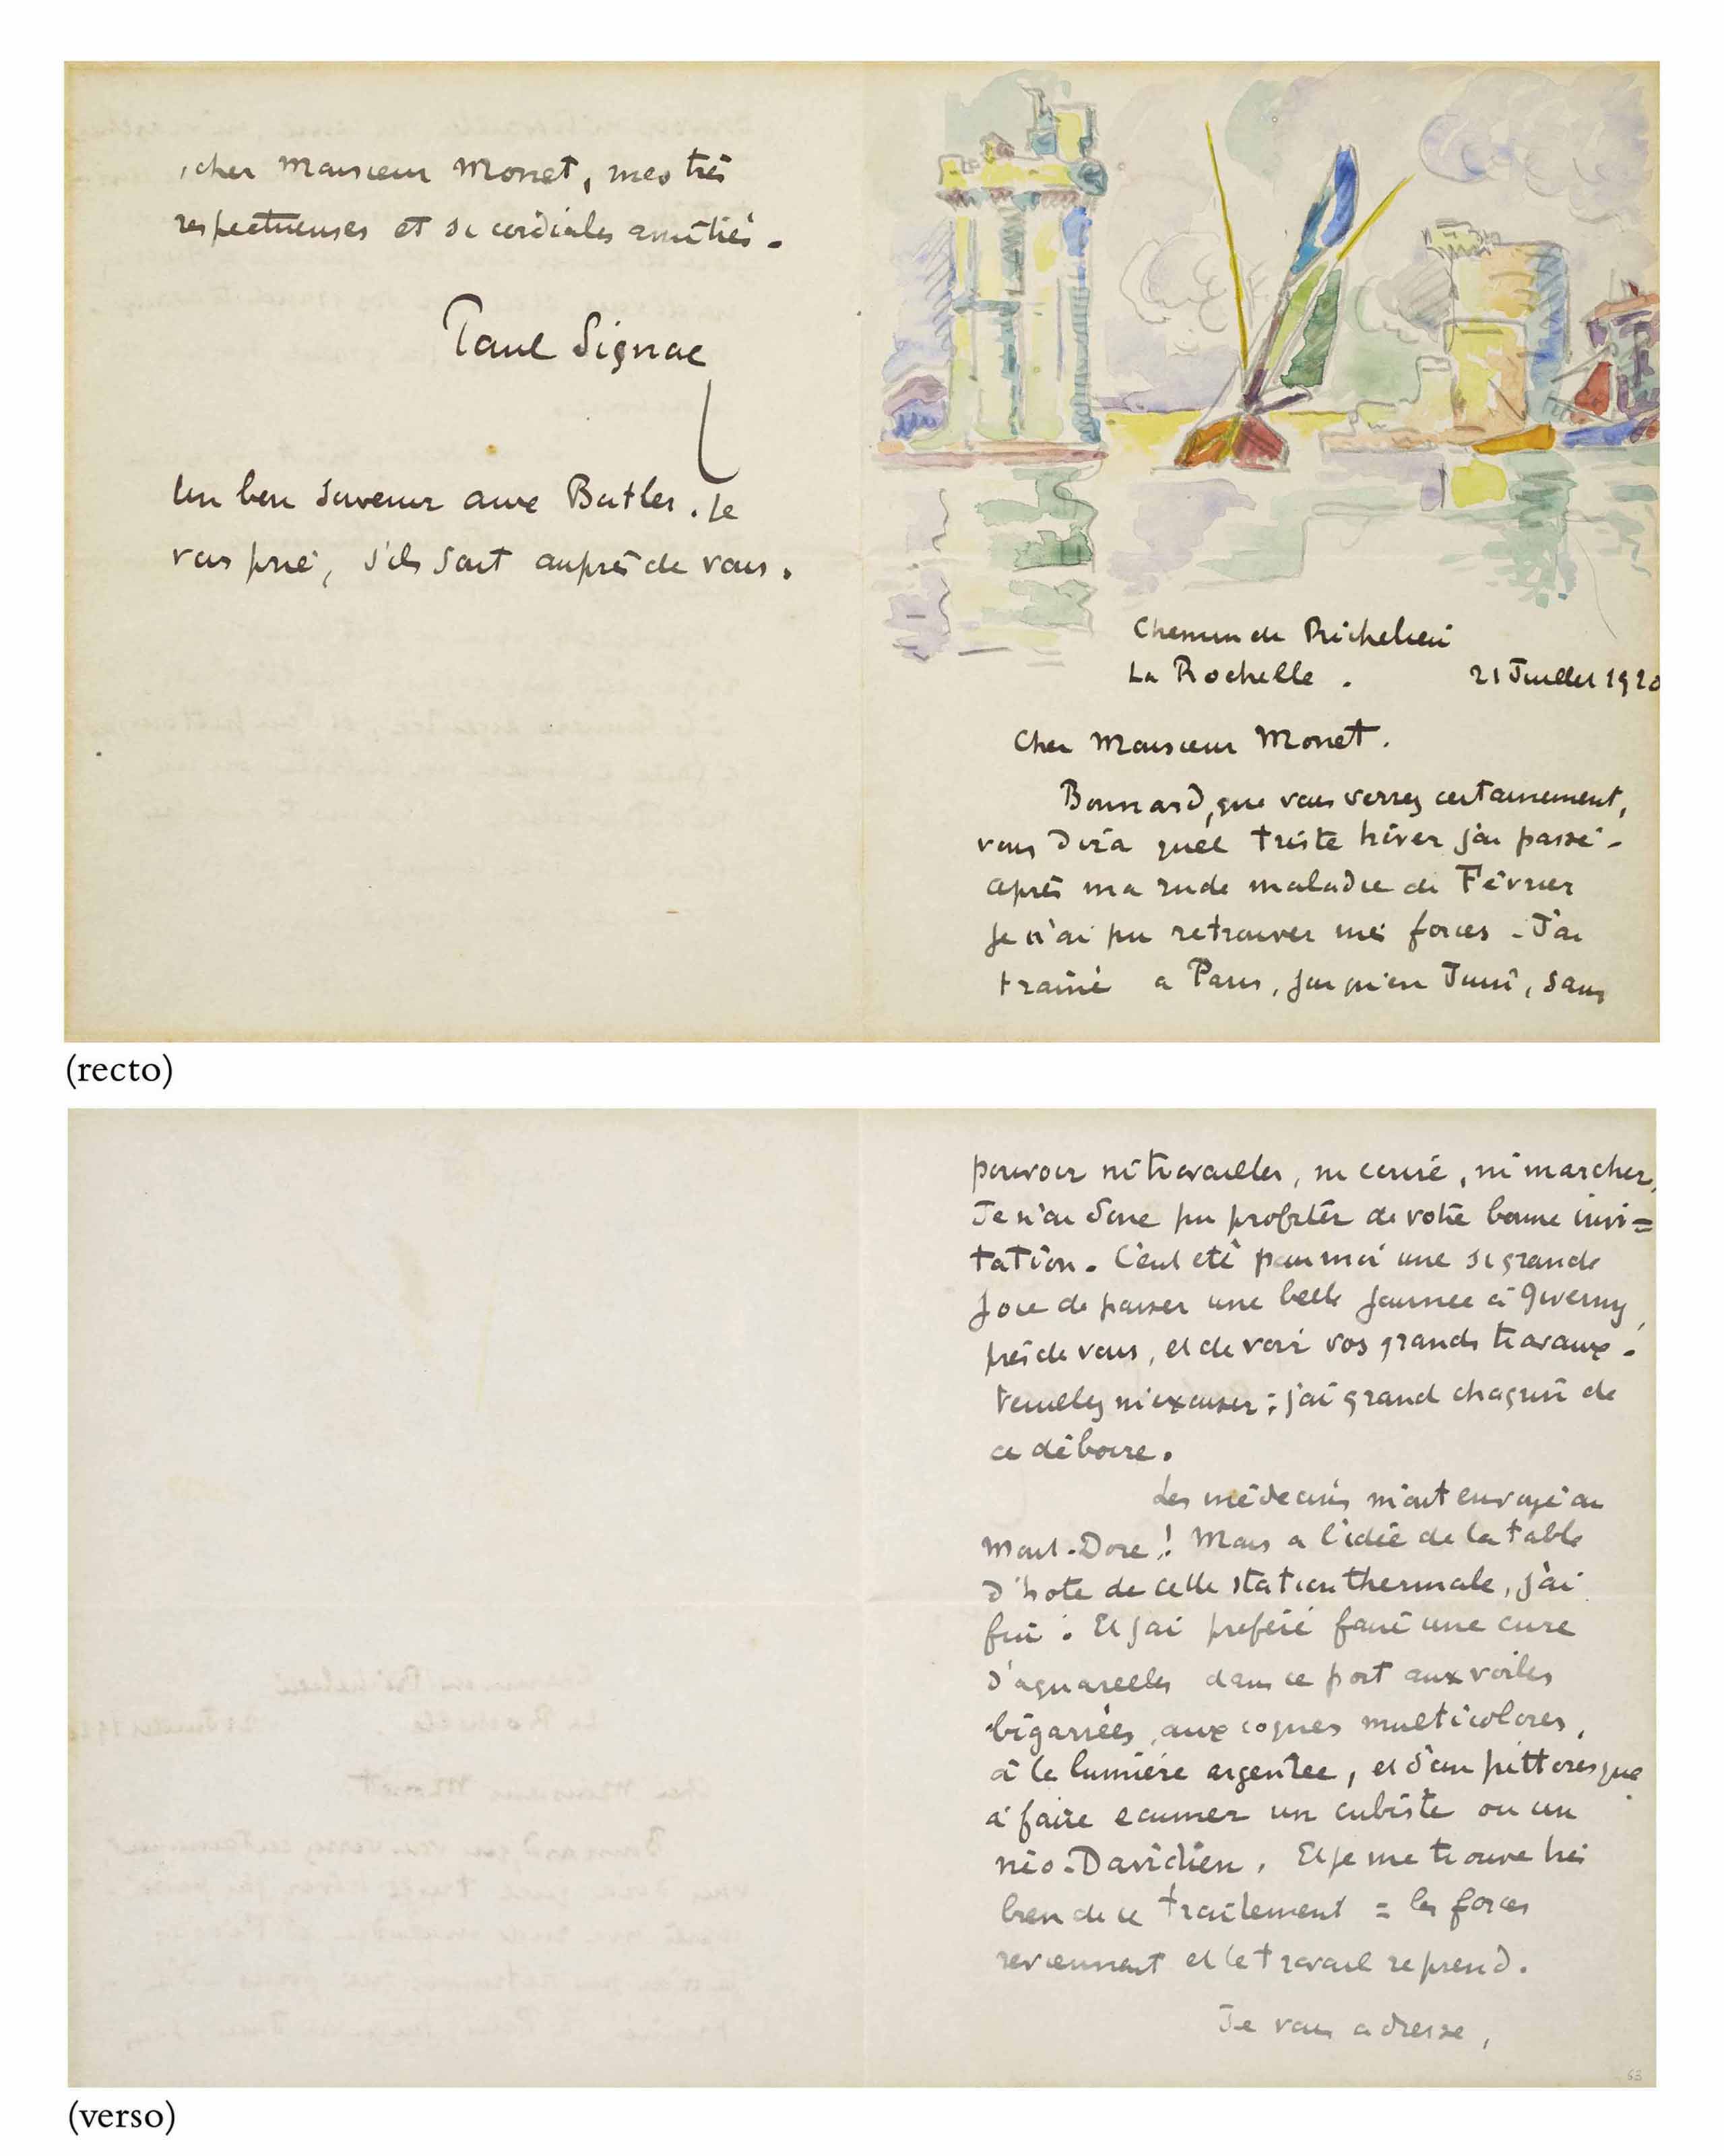 Chemin de Richelieu
La Rochelle. 21 Juillet 1920
Cher Monsieur Monet.
Bonnard, que vous verrez certainement,
vous dira quel triste hiver j'ai passé -
après ma rude maladie de Février
je n'ai pu retrouver mes forces - J'ai
trainé a Paris, jusqu'en Juin, sans
(recto)
pouvoir ni travailler, ni ecrire, ni marcher.
Je n'ai donc pu profiter de votre bonne invi=
tation. C'eut eté pour moi une si grande
joie de passer une belle journée à Giverny,
près de vous, et de voir vos grands travaux.
Veuillez m'excuser : j'ai grand chagrin de
ce déboire.
Les médecins m'ont envoyé au
Mont-Dore ! Mais a l'idée de la table
d'hote de cette station thermale, j'ai
fui : Et j'ai préféré faire une cure
d'aquarelles dans ce port aux voiles
bigarrées, aux coques multicolores,
à la lumière argentée, et d'un pittoresque
à faire ecumer un cubiste ou un
néo-Davidien. Et je me trouve très
bien de ce traitement = les forces
reviennent et le travail reprend.
Je vous adresse,
63
(verso)
cher Monsieur Monet, mes très
respectueuses et si cordiales amitiés -
Paul Signac
Un bon souvenir aux Butler. Je
vous prie, s'ils sont auprès de vous.